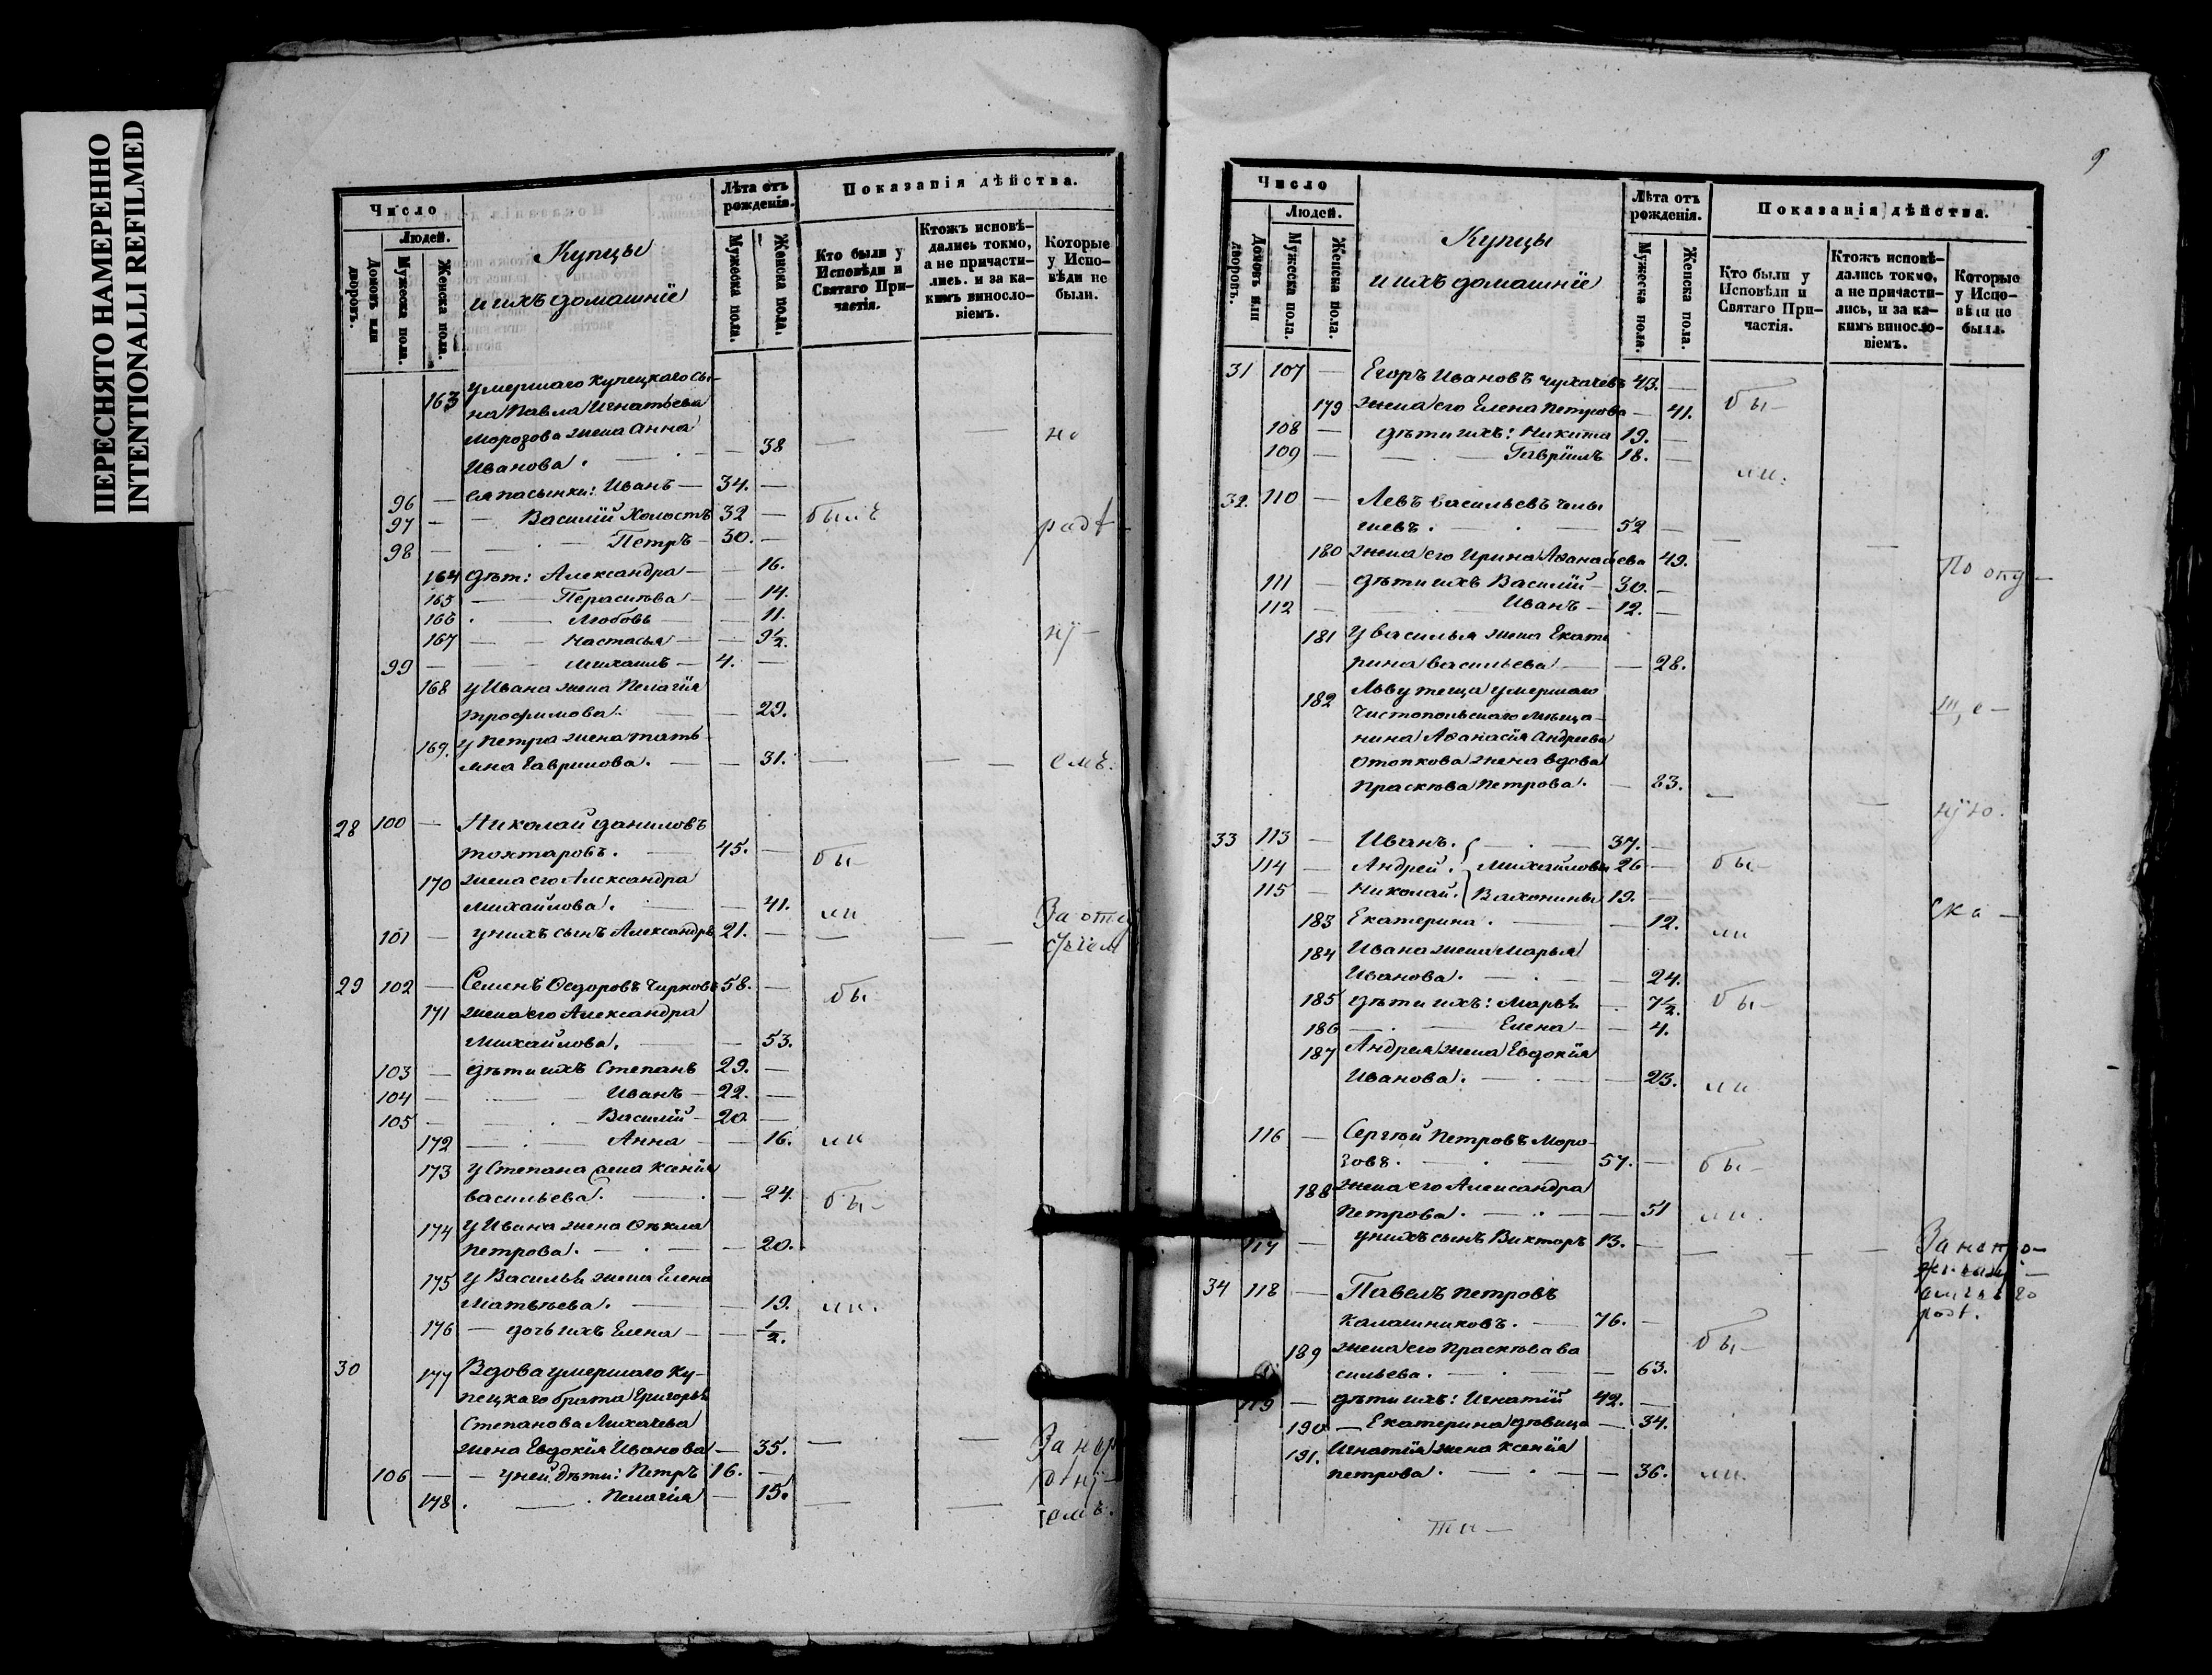 ПЕРЕСНЯТО НАМЕРЕННО
INTENTIONALLI REFILMED
Число
Людей.
Домовъ или дворовъ.
Мужеска пола.
Женска пола.
Купцы
и ихъ домашніе
Лѣта отъ рожденія.
Мужеска пола.
Женска пола.
Показанія дѣйства.
Кто были у Исповѣди и Святаго При-
частія.
Ктожъ исповѣ-
дались токмо,
а не причасти-
лись. и за ка-
кимъ винослo-
віемъ.
Которые
у Испо-
вѣди не
были.
163 умершаго купецкаго сы-
на Павла Игнатьева
Морозова жена Анна
Иванова. — 38 — — не
96 — ея пасынки: Иванъ — 34. —
97 — — Василій Холостъ 32 — былъ рад
98 — — Петръ — 30. —
164 дѣт: Александра — — 16.
165 — Параскѣва — — 14.
166 — Любовь — — 11.
167 — — Настасья — — 9½.
99 — — Михаилъ — 4. —
168 у Ивана жена Пелагія
Трофимова. — — 29.
169. у Петра жена Тать-
яна Гаврилова. — — 31. — — емъ.
28 100 — Николай Даниловъ
Тохтаровъ. — 45. — бы-
170 жена его Александра
Михайлова. — — 41. ли
101 — у нихъ сынъ Александръ 21. — — — За отсу
29 102 — Семенъ Ѳедоровъ Чирковъ 58. — бы
171 жена его Александра
Михайлова. — — 53.
103 — дѣти ихъ Степанъ 29. —
104 — — Иванъ — 22. —
105 — — Василій — 20 —
172 — — Анна — — 16. ли
173 у Степана жена Ксенія
Васильева. — — 24. бы-
174 у Ивана жена Ѳекла
Петрова. — — 20.
175 у Василья жена Елена
Матвѣева. — — 19. ли.
176 — дочь ихъ Елена — — ½.
30 177 Вдова умершаго ку-
пецкаго брата Григорья
Степанова Лихачева
жена Евдокія Иванова — 35. — — За нер
106 — — у ней дѣти: Петръ 16. — адѣнї
178. — Пелагія — 15. — — емъ.
9
Число
Людей.
Домовъ или дворовъ.
Мужеска пола.
Женска пола.
Купцы
и ихъ домашніе
Лѣта отъ
рожденія.
Мужеска пола.
Женска пола.
Показанія дѣйства.
Кто были у
Исповѣди и
Святаго При-
частія.
Ктожъ исповѣ-
дались токмо,
а не причасти-
лись, и за ка-
кимъ виносло-
віемъ.
Которые
у Испо-
вѣди не
были.
31 107 — Егоръ Ивановъ Чухачевъ 43. —
179 жена его Елена Петрова — 41. бы-
108 — дѣти ихъ: Никита 19. —
109 — — Гавріилъ 18. — ли.
32. 110 — Левъ Васильевъ
52 —
180 жена его Ирина Аѳанасьева 49. — —
111 — дѣти ихъ Василій — 30. — По опу-
112 — — Иванъ — 12. —
181 у Василья жена Екате
рина Васильева — — 28.
182 Льву теща умершаго
Чистопольскаго мѣща-
нина Аѳанасія Андреева
Отопкова жена вдова
Праскѣва Петрова. — 83. — —
33 113 — Иванъ. — 37. —
114 — Андрей. Михайловы 26 — бы-
115 — Николай. Вахонины 19. —
183 Екатерина. — — 12. ли
184 Ивана жена Марья
Иванова. — — 24.
185 дѣти ихъ: Марья — 7½. бы-
186 — Елена — — 4.
187 Андрея жена Евдокія
Иванова. — — 23. ли
116 — Сергѣй Петровъ Моро-
зовъ. — 57. — бы-
188 жена его Александра
Петрова. — — 51 ли.
117 — у нихъ сынъ Викторъ 13. — — —
34 118 — Павелъ Петровъ
Калашниковъ. — 76. — бы-
189 жена его Праскѣва Ва
сильева. — — 63.
119 — дѣти ихъ: Игнатій 42. —
190 — Екатерина дѣвица — 34.
191. Игнатія жена Ксенія
Петрова. — — 36. ли.